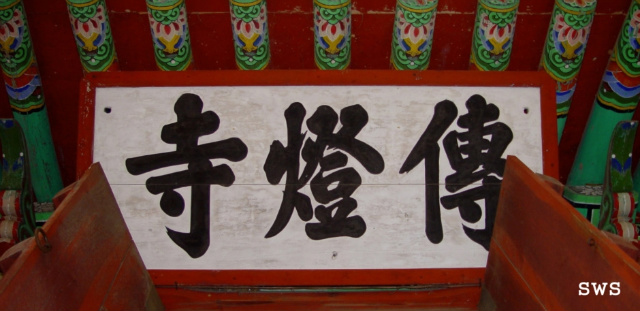 傳燈寺
SWS